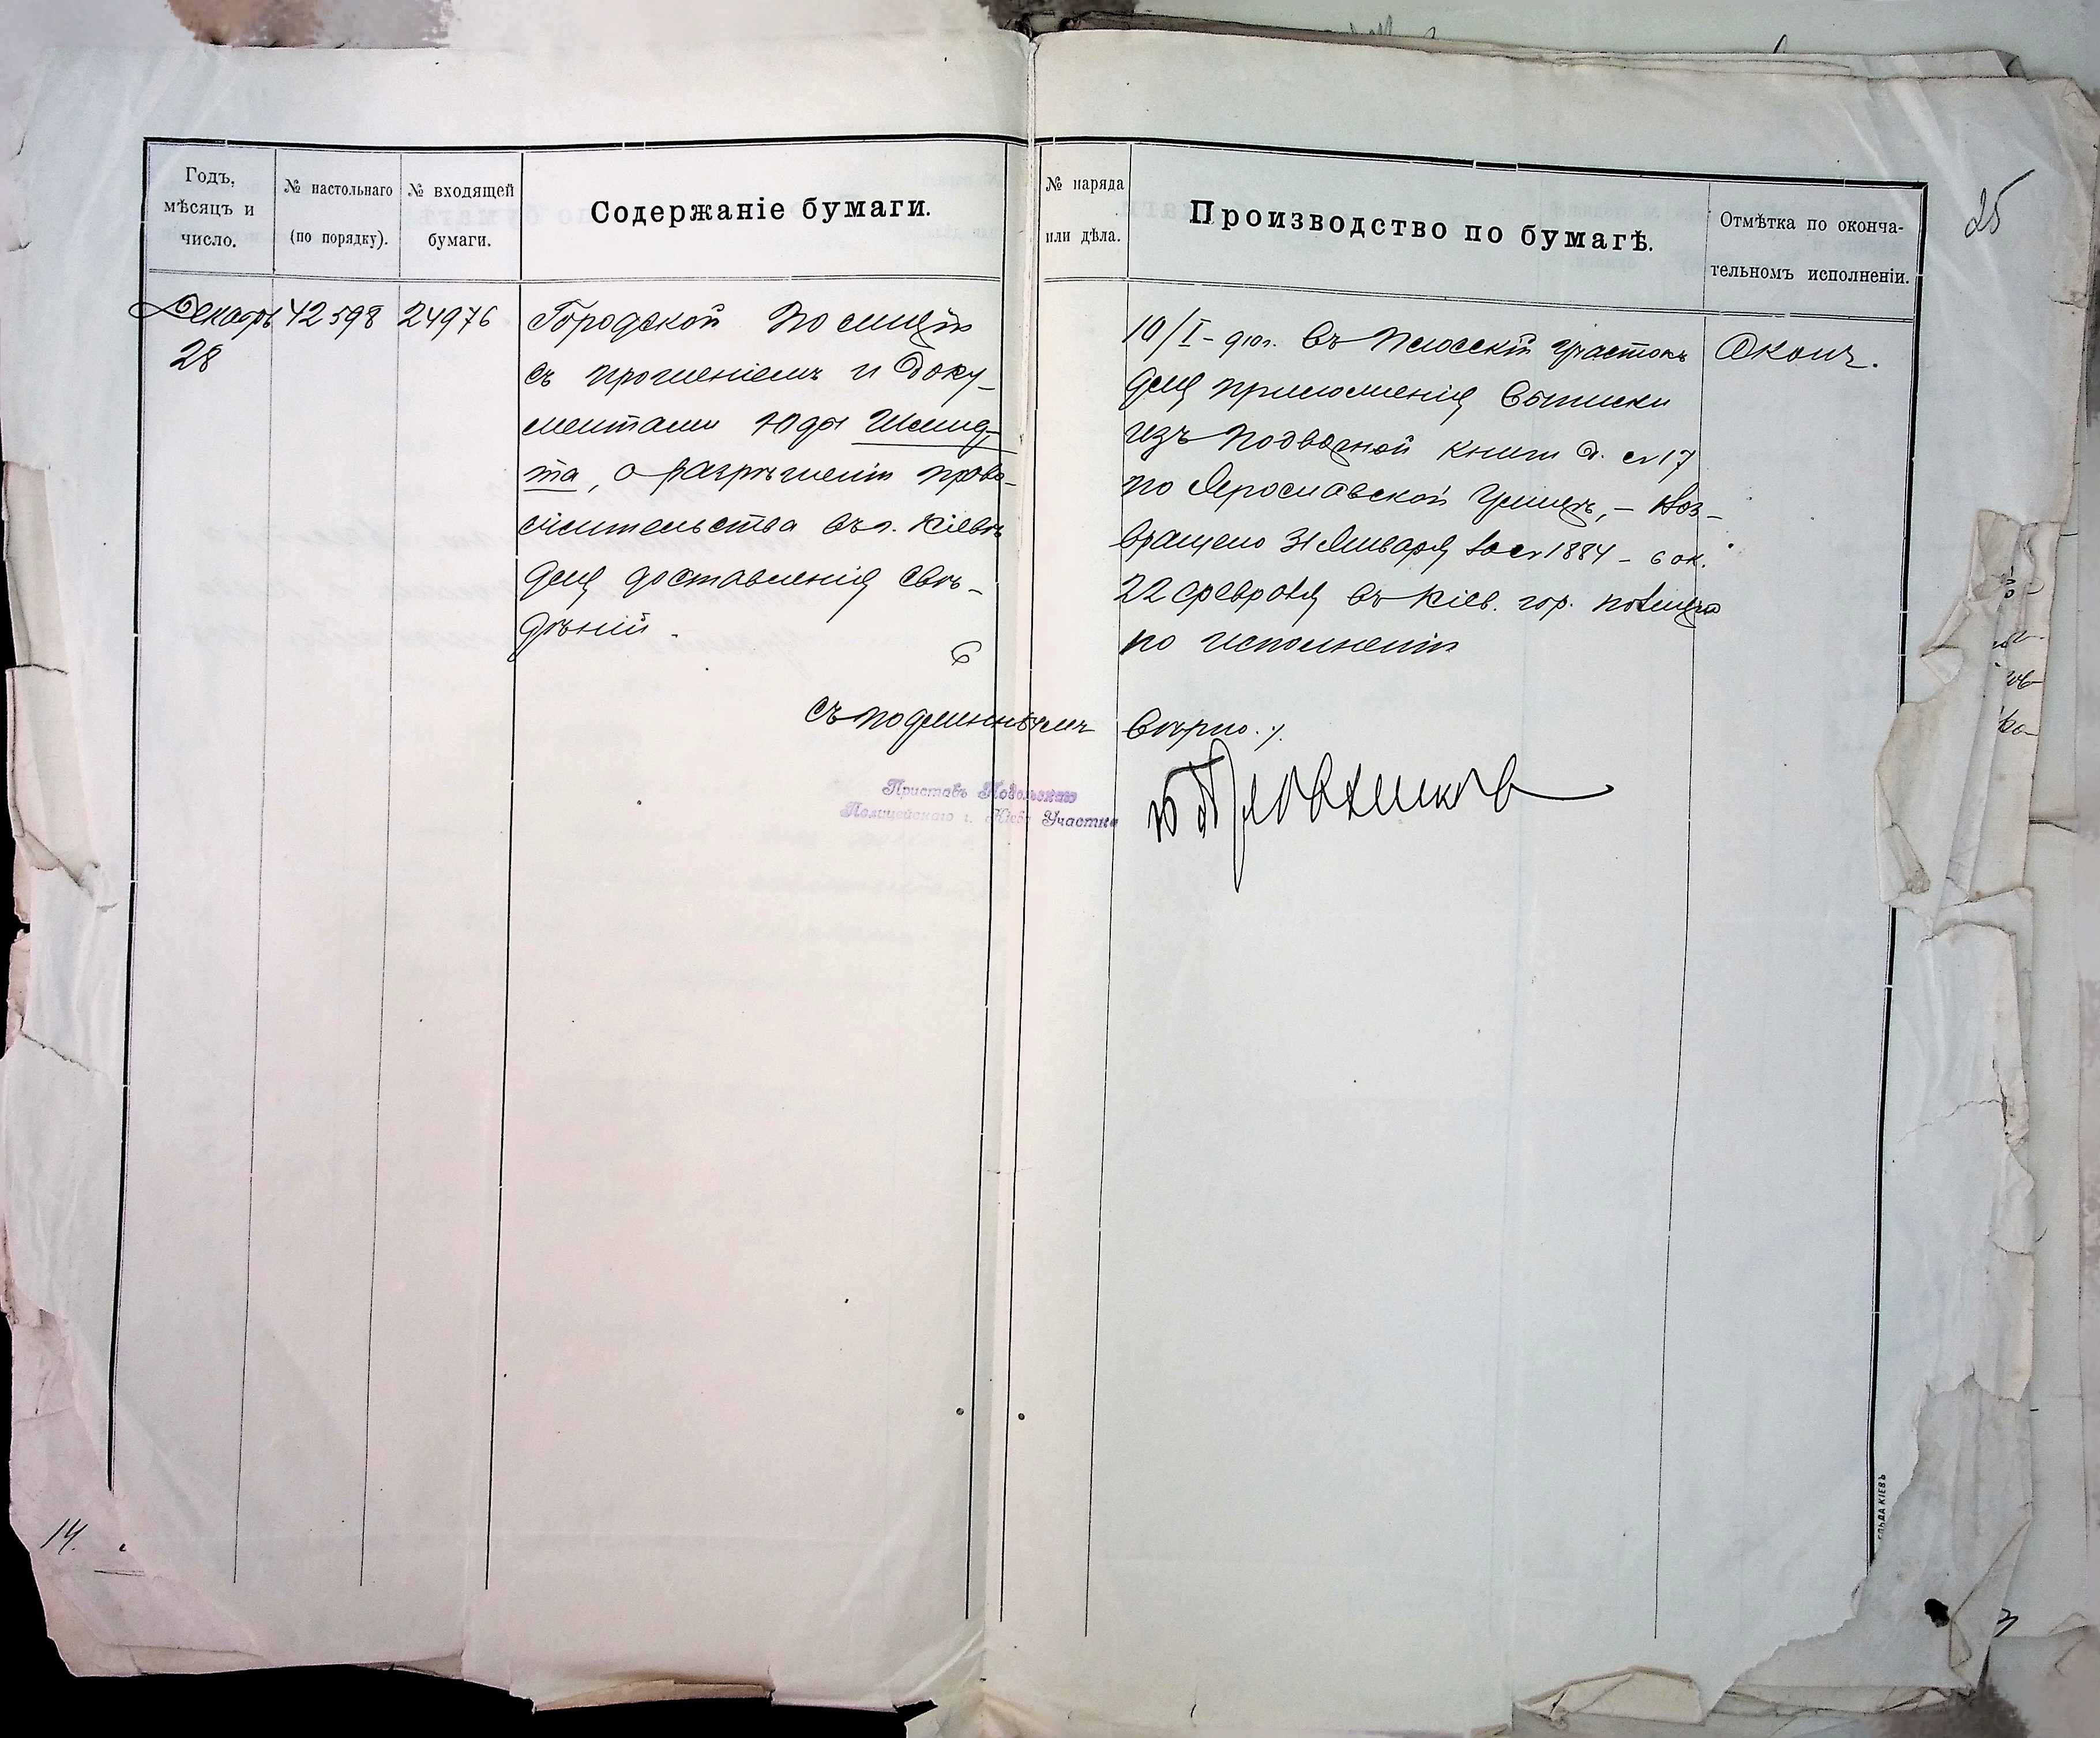 25
Годъ, мѣсяцъ и число.
№ настольнаго (по порядку).
№ входящей бумаги.
Содержаніе бумаги.
№ наряда или дѣла.
Производство по бумагѣ.
Отмѣтка по окончательномъ исполненіи.
Декабрь 28
42598
24976
Городской Полиціи
съ прошеніемъ и доку-
ментами Юды Шмид-
та, о разрѣшеніи прово-
жительства въ г. Кіевѣ
для доставленія свѣ-
дѣній.
6
10/I - 910 г. въ Плосскій участокъ
для приложенія выписки
изъ подворной книги д. № 17
по Ярославской улицѣ, - воз-
вращено 31 Января за № 1884 - 6 ок.
22 февраля въ Кіев. гор. полицію
по исполненіи
Оконч.
Съ подлиннымъ вѣрно.
Приставъ Подольскаго
Полицейскаго г. Кіева Участка
14.
ЕЛЬДА КІЕВЪ